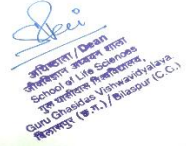 अधिष्ठाता/Dean
जीवविज्ञान अध्ययन शाला
School of Life Sciences
गुरू घासीदास विश्वविद्यालय,
Guru Ghasidas Vishwavidyalaya,
बिलासपुर (छ.ग.)/Bilaspur (C.G.)